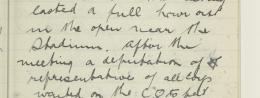 lasted a full hour out
in the open near the
Stadium. After the
meeting a deputation of
representative of all
waited on the C.O. &